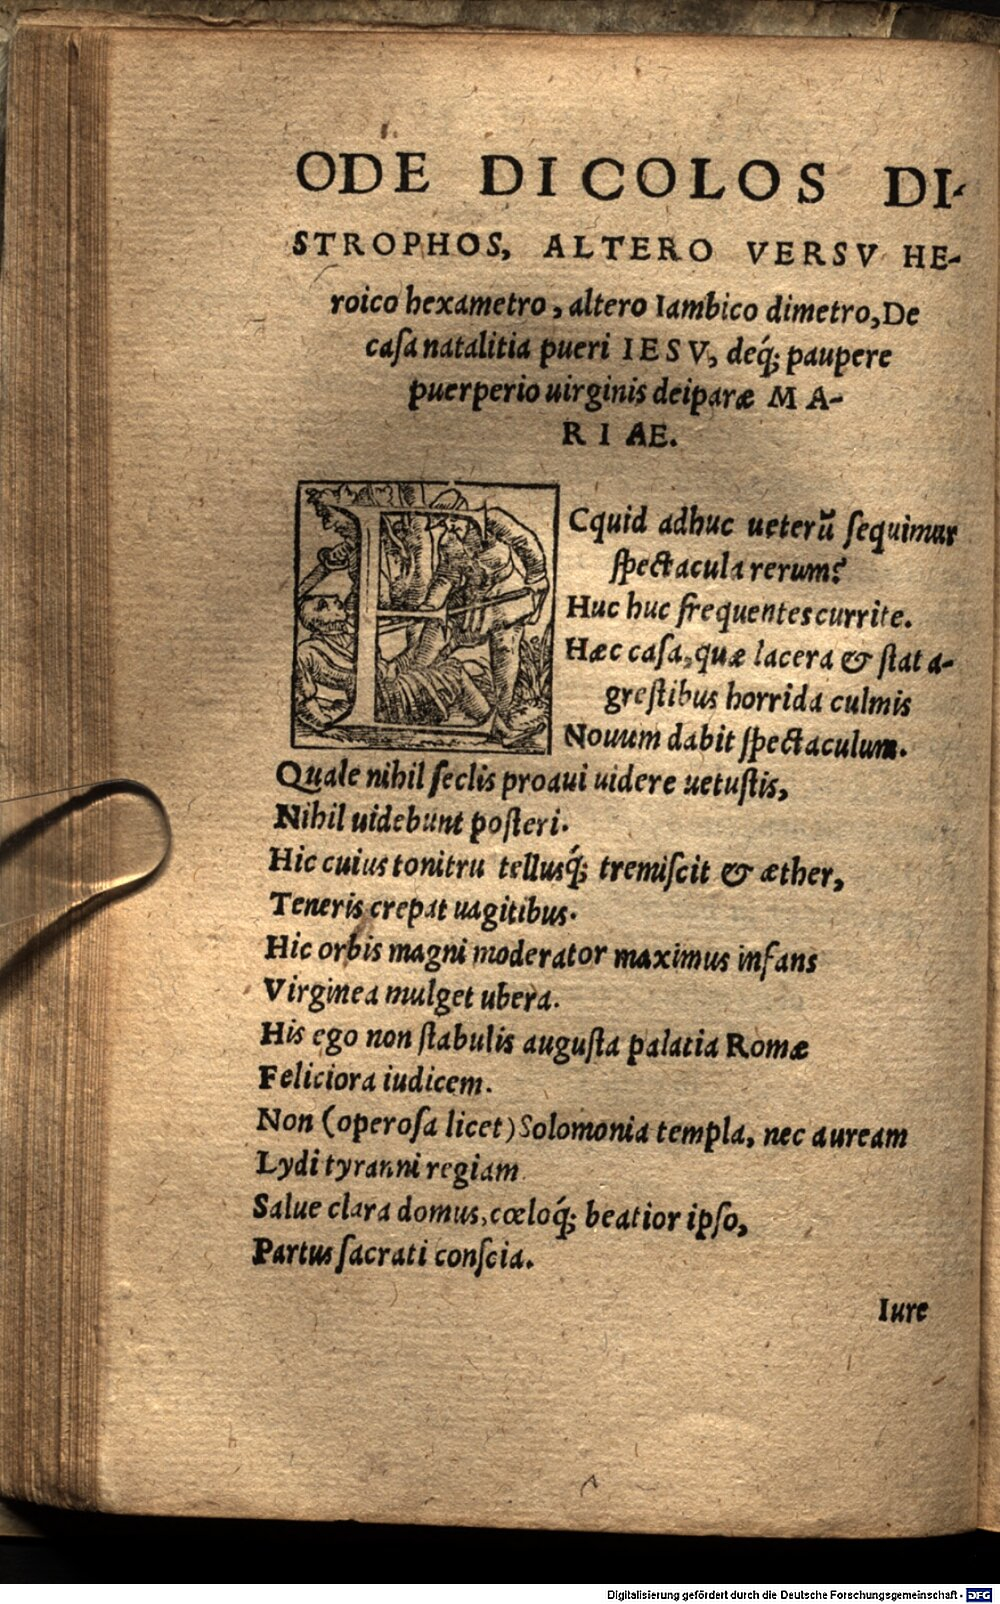 ODE DICOLOS DI-
STROPHOS, ALTERO VERSV HE-
roico hexametro, altero Iambico dimetro, De
caſa natalitia pueri IESV, deq́; paupere
puerperio uirginis deiparæ MA-
RIAE.
ECquid adhuc ueterũ ſequimur
ſpectacula rerum?
Huc huc frequentes currite.
Hæc caſa, quæ lacera & ſtat a-
greſtibus horrida culmis
Nouum dabit ſpectaculum.
Quale nihil ſeclis proaui uidere uetuſtis,
Nihil uidebunt poſteri.
Hic cuius tonitru tellusq́; tremiſcit & æther,
Teneris crepat uagitibus.
Hic orbis magni moderator maximus infans
Virginea mulget ubera.
His ego non ſtabulis auguſta palatia Romæ
Feliciora iudicem.
Non (operoſa licet) Solomonia templa, nec auream
Lydi tyranni regiam.
Salue clara domus, cœloq́; beatior ipſo,
Partus ſacrati conſcia.
Iure
Digitalisierung gefördert durch die Deutsche Forschungsgemeinschaft - DFG